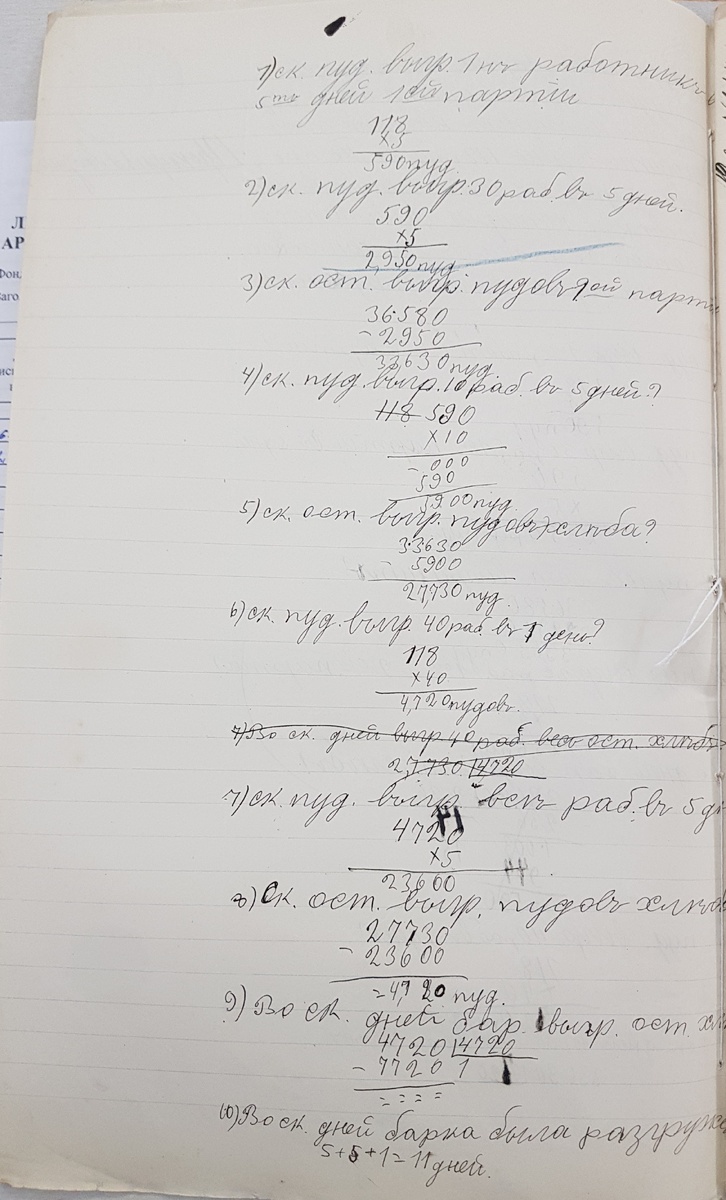 1) ск. пуд. выгр. 1нъ работникъ в
5ть дней 1ой партіи
118
×5
590 пуд.
2) ск. пуд. выгр. 30 раб. въ 5 дней.
590
×5
2,950 пуд.
3) ск. ост. выгр. пудовъ 1ой парті
36580
- 2950
33630 пуд.
4) ск. пуд. выгр. 10 раб. въ 5 дней?
118 590
×10
000
590
5900 пуд.
5) ск. ост. выгр. пудовъ хлѣба?
33630
- 5900
27,730 пуд.
6) ск. пуд. выгр. 40 раб. въ 1 день?
118
×40
4,720 пудовъ.
7) Во ск. дней выгр 40 раб. весь ост. хлѣбъ?
27730 4720
7) ск. пуд. выгр. всѣ раб. въ 5 д
4720
×5
23600
8) Ск. ост. выгр. пудовъ хлѣба
27730
- 23600
= 4720 пуд.
9) Во ск. дней бар. выгр. ост. хл
4720 4720
- 7720 1
= = = =
10) Во ск. дней барка была разгруже
5+5+1=11 дней.
Л
АР